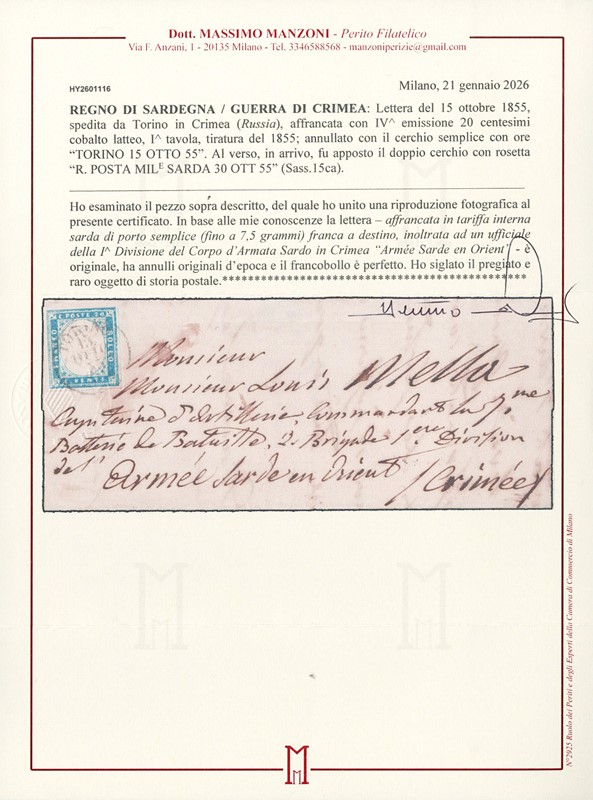 Dott. MASSIMO MANZONI - Perito Filatelico
Via F. Anzani, 1 - 20135 Milano - Tel. 3346588568 - manzoniperizie@gmail.com
HY2601116
Milano, 21 gennaio 2026
REGNO DI SARDEGNA / GUERRA DI CRIMEA: Lettera del 15 ottobre 1855,
spedita da Torino in Crimea (Russia), affrancata con IV^ emissione 20 centesimi
cobalto latteo, I^ tavola, tiratura del 1855; annullato con il cerchio semplice con ore
“TORINO 15 OTTO 55”. Al verso, in arrivo, fu apposto il doppio cerchio con rosetta
“R. POSTA MILᴱ SARDA 30 OTT 55” (Sass.15ca).
Ho esaminato il pezzo sopra descritto, del quale ho unito una riproduzione fotografica al
presente certificato. In base alle mie conoscenze la lettera – affrancata in tariffa interna
sarda di porto semplice (fino a 7,5 grammi) franca a destino, inoltrata ad un ufficiale
della I^ Divisione del Corpo d'Armata Sardo in Crimea “Armée Sarde en Orient” - è
originale, ha annulli originali d'epoca e il francobollo è perfetto. Ho siglato il pregiato e
raro oggetto di storia postale.************************************************
C. POSTE 20
BOLLO
Monsieur
Monsieur Louis Mella
Capitaine d'Artillerie, Commandant la 7.me
Batterie de Bataille, 2. Brigade 1ere Division
de l'Armée Sarde en Orient
/Crimée/
N°2925 Ruolo dei Periti e degli Esperti della Camera di Commercio di Milano